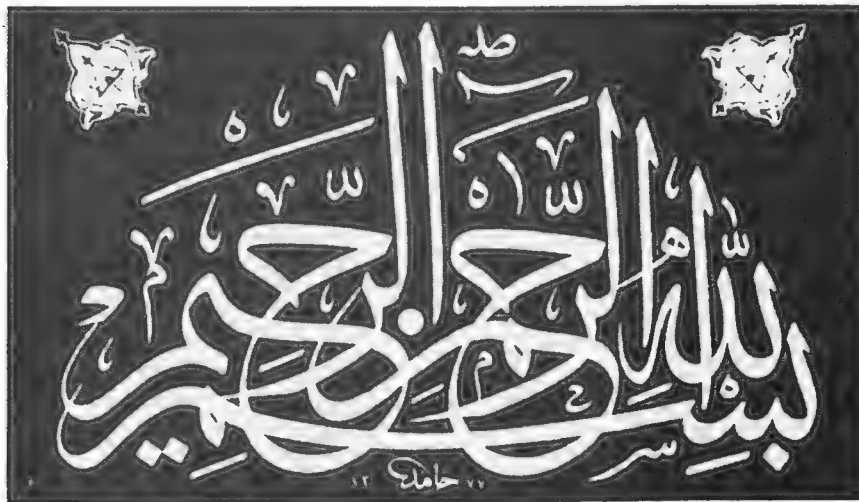 بِسْمِ اللّٰهِ الرَّحْمٰنِ الرَّحِيمِ
حامد